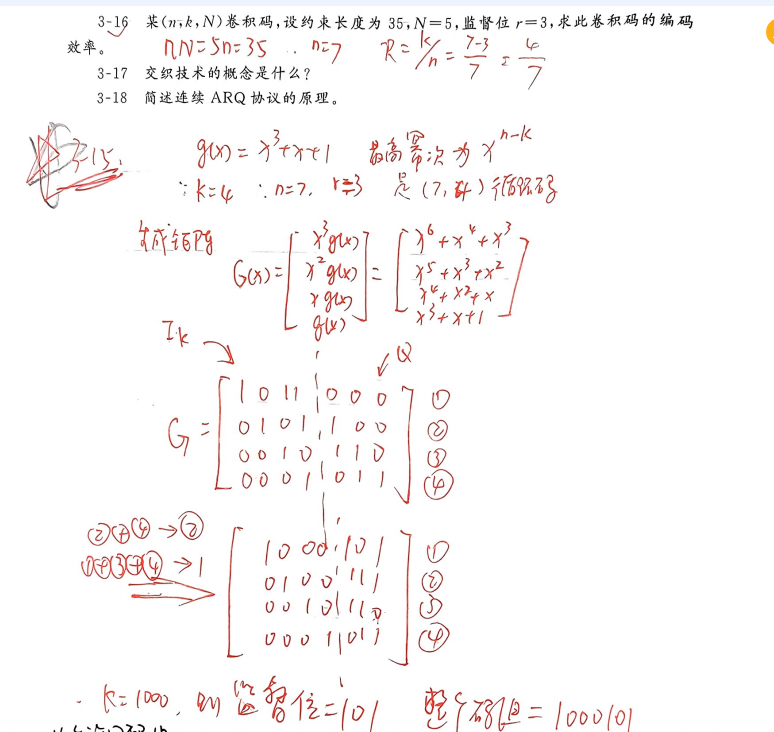 3-16 某(n,k,N)卷积码,设约束长度为 35,N=5,监督位 r=3,求此卷积码的编码
效率。 nN=5n=35 ∴ n=7 R=k/n=(7-3)/7=4/7
3-17 交织技术的概念是什么?
3-18 简述连续 ARQ 协议的原理。
3-15. g(x)=x³+x+1 最高幂次为 x^(n-k)
∵k=4 ∴n=7, r=3 是(7,4)循环码
G(x)= [x³g(x) x²g(x) xg(x) g(x)] = [x⁶+x⁴+x³ x⁵+x³+x² x⁴+x²+x x³+x+1]
Ik Q
G=
1 0 1 1 0 0 0 ①
0 1 0 1 1 0 0 ②
0 0 1 0 1 1 0 ③
0 0 0 1 0 1 1 ④
②+④→②
①+③+④→1
1 0 0 0 1 0 1 ①
0 1 0 0 1 1 1 ②
0 0 1 0 1 1 0 ③
0 0 0 1 0 1 1 ④
k=1000, 则监督位=101 整个码组=1000101